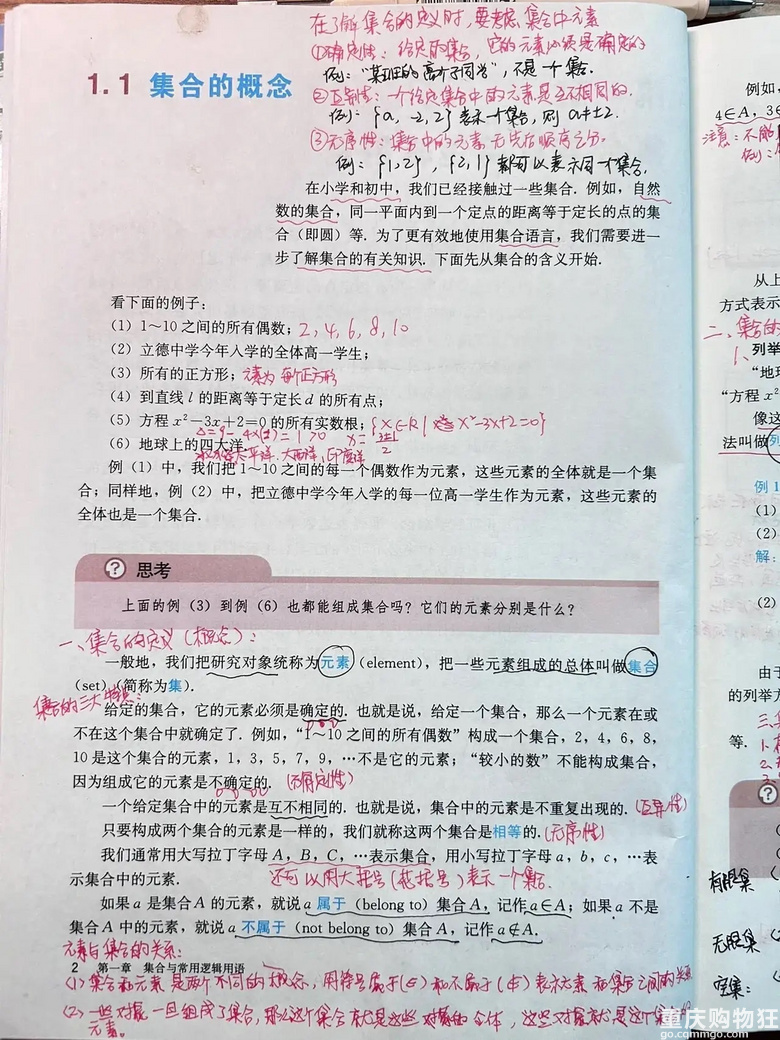 在了解集合的定义时,要考虑集合中元素
①确定性:给定的集合,它的元素必须是确定的
例:“某班的高个子同学”,不是一个集合.
②互异性:一个给定集合中的元素是互不相同的.
例:{a,-2,2}表示一个集合,则 a≠±2.
③无序性:集合中的元素无先后顺序之分.
例:{1,2},{2,1}都可以表示同一个集合.
1.1 集合的概念
在小学和初中,我们已经接触过一些集合. 例如,自然
数的集合,同一平面内到一个定点的距离等于定长的点的集
合(即圆)等. 为了更有效地使用集合语言,我们需要进一
步了解集合的有关知识. 下面先从集合的含义开始.
看下面的例子:
(1)1~10之间的所有偶数;2,4,6,8,10
(2)立德中学今年入学的全体高一学生;
(3)所有的正方形;元素为 每个正方形
(4)到直线 l 的距离等于定长 d 的所有点;
(5)方程 x²-3x+2=0 的所有实数根;{x∈R| x²-3x+2=0}
(6)地球上的四大洋.
太平洋、大西洋、印度洋
例(1)中,我们把1~10之间的每一个偶数作为元素,这些元素的全体就是一个集
合;同样地,例(2)中,把立德中学今年入学的每一位高一学生作为元素,这些元素的
全体也是一个集合.
? 思考
上面的例(3)到例(6)也都能组成集合吗?它们的元素分别是什么?
一、集合的定义(概念):
一般地,我们把研究对象统称为元素(element),把一些元素组成的总体叫做集合
(set)(简称为集).
集合的三大特点:
给定的集合,它的元素必须是确定的. 也就是说,给定一个集合,那么一个元素在或
不在这个集合中就确定了. 例如,“1~10之间的所有偶数”构成一个集合,2,4,6,8,
10是这个集合的元素,1,3,5,7,9,…不是它的元素;“较小的数”不能构成集合,
因为组成它的元素是不确定的.
一个给定集合中的元素是互不相同的. 也就是说,集合中的元素是不重复出现的.(互异性)
只要构成两个集合的元素是一样的,我们就称这两个集合是相等的.(无序性)
我们通常用大写拉丁字母 A,B,C,…表示集合,用小写拉丁字母 a,b,c,…表
示集合中的元素.
还可以用大括号(花括号)表示一个集合.
如果 a 是集合 A 的元素,就说 a 属于(belong to)集合 A,记作 a∈A;如果 a 不是
集合 A 中的元素,就说 a 不属于(not belong to)集合 A,记作 a∉A.
元素与集合的关系:
2 第一章 集合与常用逻辑用语
(1)集合和元素是两个不同的概念,用符号属于(∈)和不属于(∉)表示元素和集合之间的关系
(2)一些对象一旦组成了集合,那么这个集合就是这些对象的全体,这些对象就是这个集合的
元素。
例如,
4∈A,3
注意:不能
例:
从上
方式表示
二、集合的
1、列举
“地球
“方程 x²
像这
法叫做列
例1
(1)
(2)
解:
(2)
由于
的列举方
等.
?
有限集
无限集
空集:
重庆购物狂
go.cqmmgo.com